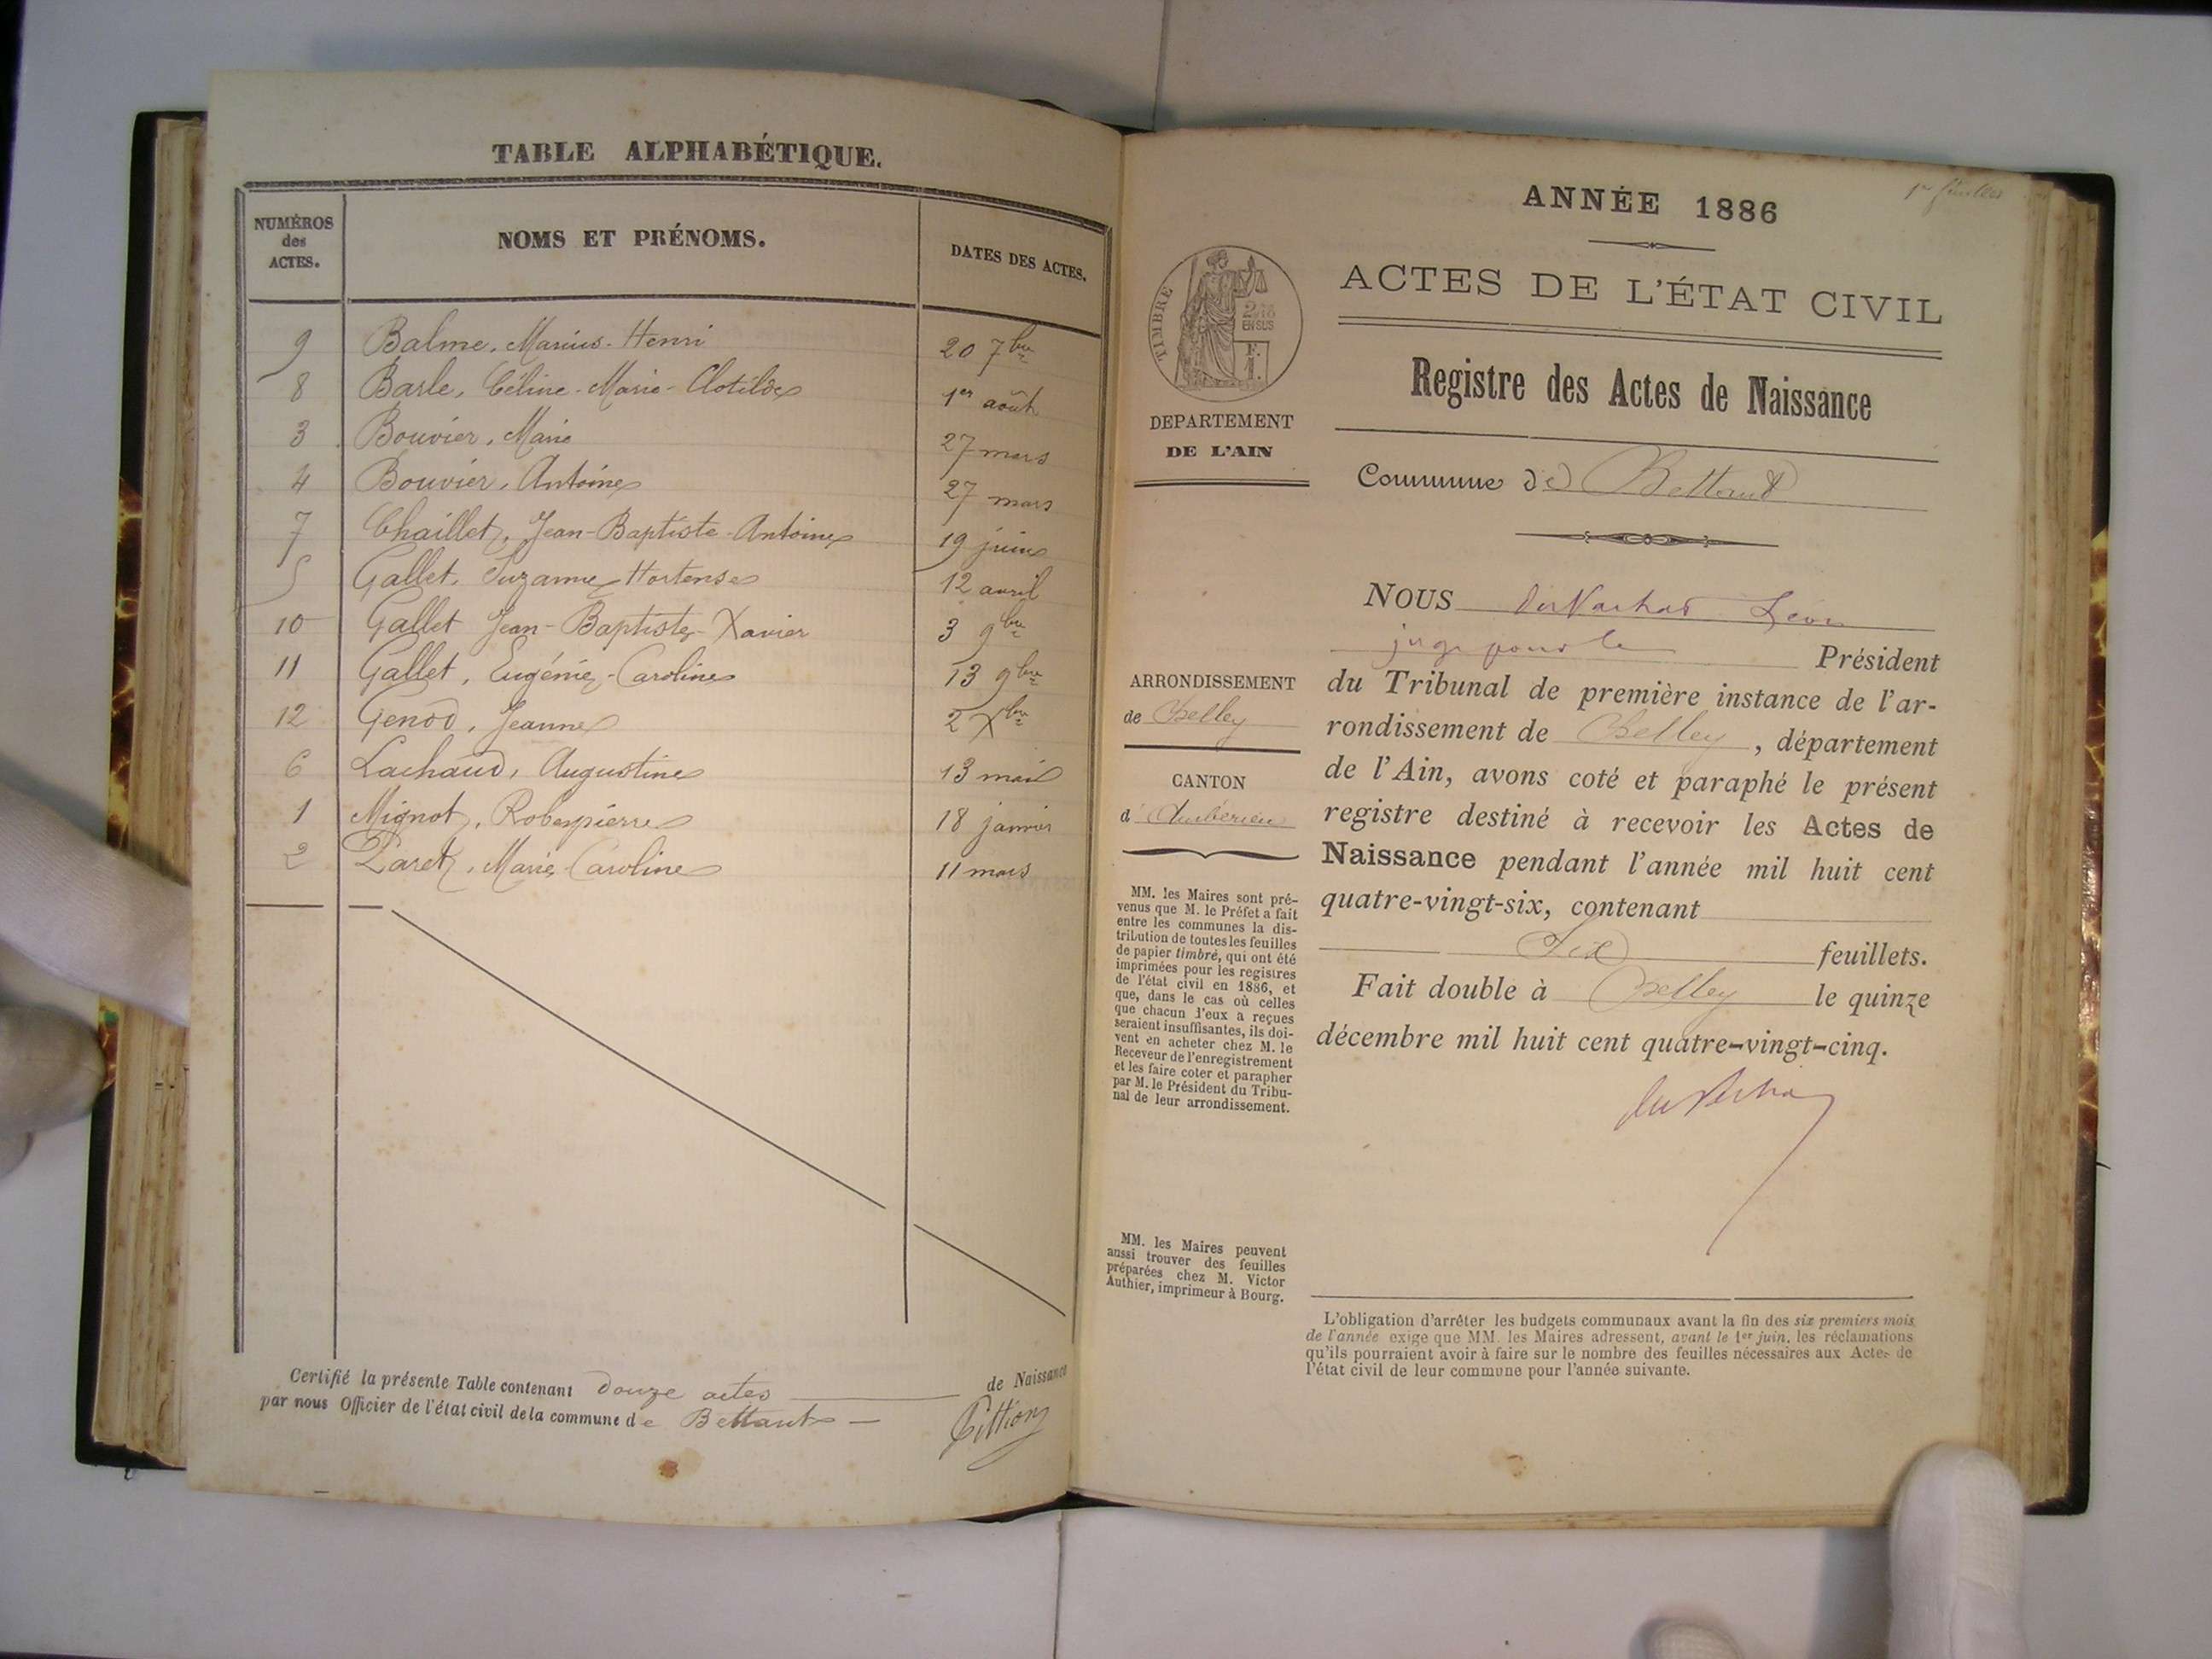 TABLE ALPHABÉTIQUE.
NUMÉROS des ACTES. NOMS ET PRÉNOMS. DATES DES ACTES.
9 Balme, Marius-Henri 20 7bre
8 Barle, Céline-Marie-Clotilde 1er août
3 Bouvier, Marie 27 mars
4 Bouvier, Antoine 27 mars
7 Chaillet, Jean-Baptiste-Antoine 19 juin
5 Gallet, Suzanne-Hortense 12 avril
10 Gallet Jean-Baptiste-Xavier 3 9bre
11 Gallet, Eugénie-Caroline 13 9bre
12 Genod, Jeanne 2 Xbre
6 Lachaud, Augustine 13 mai
1 Mignot, Robespierre 18 janvier
2 Paret, Marie-Caroline 11 mars
Certifié la présente Table contenant douze actes de Naissance
par nous Officier de l'état civil de la commune de Bettant
1er feuillet
ANNÉE 1886
ACTES DE L'ÉTAT CIVIL
Registre des Actes de Naissance
Commune de Bettant
TIMBRE
2/10
EN SUS
DEPARTEMENT
DE L'AIN
ARRONDISSEMENT
de Belley
CANTON
d'Ambérieu
MM. les Maires sont pré-
venus que M. le Préfet a fait
entre les communes la dis-
tribution de toutes les feuilles
de papier timbré, qui ont été
imprimées pour les registres
de l'état civil en 1886, et
que, dans le cas où celles
que chacun d'eux a reçues
seraient insuffisantes, ils doi-
vent en acheter chez M. le
Receveur de l'enregistrement
et les faire coter et parapher
par M. le Président du Tribu-
nal de leur arrondissement.
MM. les Maires peuvent
aussi trouver des feuilles
préparées chez M. Victor
Authier, imprimeur à Bourg.
NOUS Léon
juge pour le Président
du Tribunal de première instance de l'ar-
rondissement de Belley, département
de l'Ain, avons coté et paraphé le présent
registre destiné à recevoir les Actes de
Naissance pendant l'année mil huit cent
quatre-vingt-six, contenant
Six feuillets.
Fait double à Belley le quinze
décembre mil huit cent quatre-vingt-cinq.
L'obligation d'arrêter les budgets communaux avant la fin des six premiers mois
de l'année exige que MM. les Maires adressent, avant le 1er juin, les réclamations
qu'ils pourraient avoir à faire sur le nombre des feuilles nécessaires aux Actes de
l'état civil de leur commune pour l'année suivante.